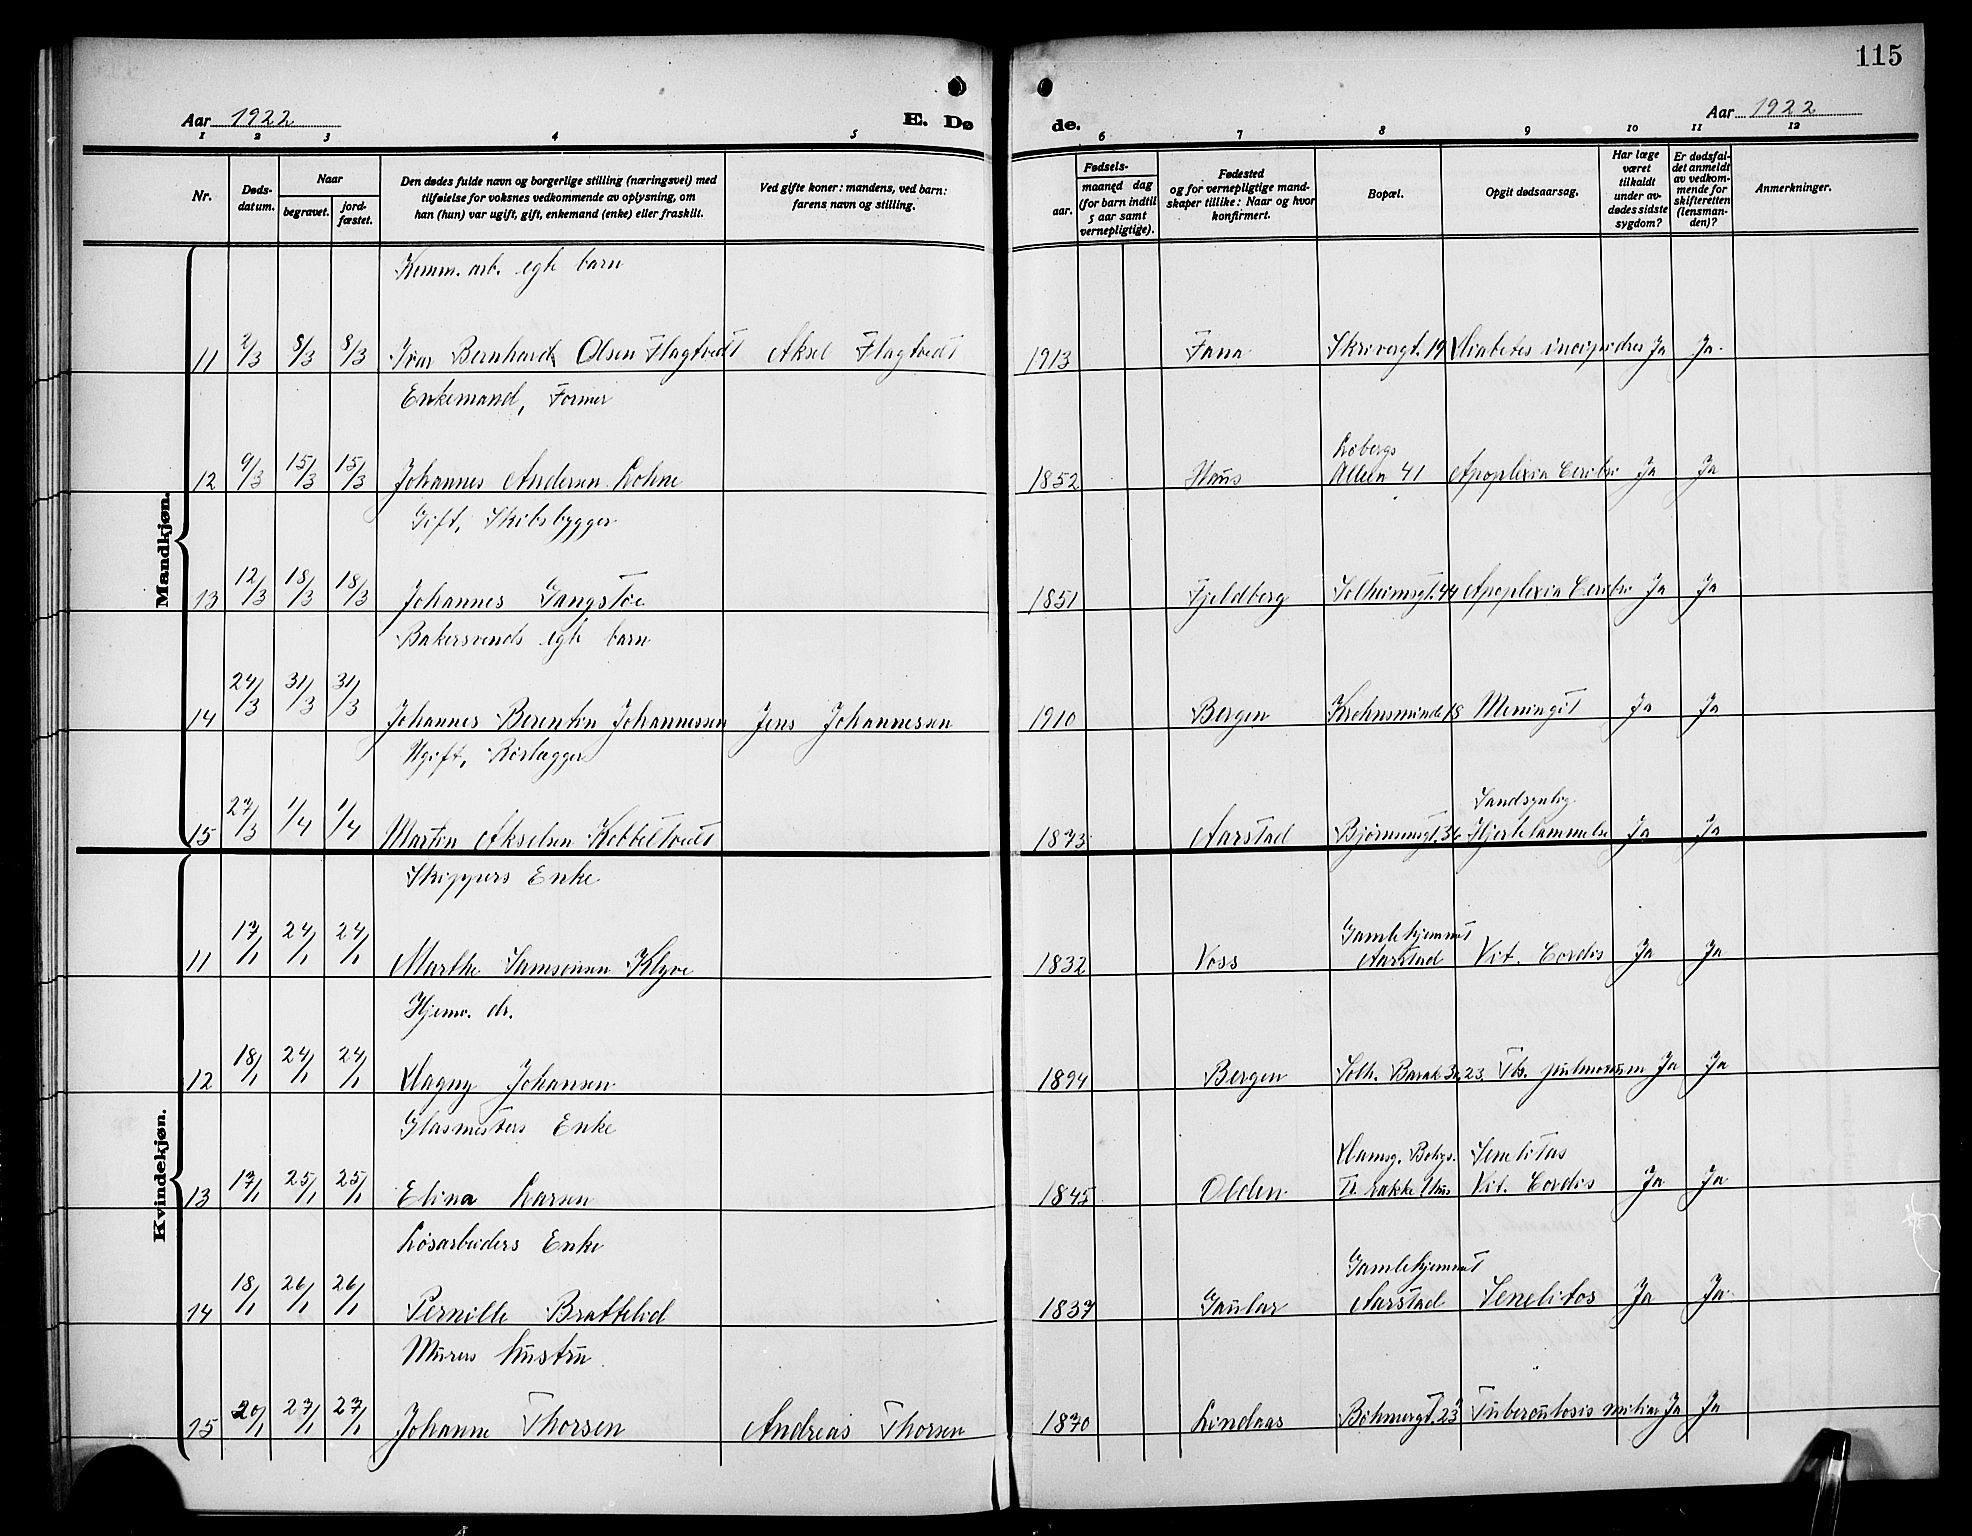 115
Aar 1922
E. Dø
de.
Aar 1922
1 2 3 4 5 6 7 8 9 10 11 12
Nr.
Døds-
datum.
Naar
begravet.
jord-
fæstet.
Den dødes fulde navn og borgerlige stilling (næringsvei) med
tilføielse for voksnes vedkommende av oplysning, om
han (hun) var ugift, gift, enkemand (enke) eller fraskilt.
Ved gifte koner: mandens, ved barn:
farens navn og stilling.
Fødsels-
aar.
maaned dag
(for barn indtil
5 aar samt
vernepligtige).
Fødested
og for vernepligtige mand-
skaper tillike: Naar og hvor
konfirmert.
Bopæl.
Opgit dødsaarsag.
Har læge
været
tilkaldt
under av-
dødes sidste
sygdom?
Er dødsfal-
det anmeldt
av vedkom-
mende for
skifteretten
(lensman-
den)?
Anmerkninger.
Mandkjøn.
Komm. arb. egte barn
11 2/3 8/3 8/3 Ivar Bernhard Olsen Flagtvedt Aksel Flagtvedt 1913 Fana Skrivergt. 19 Diabetes incipidres Ja Ja
Enkemand, Former
Løbergs
12 9/3 15/3 15/3 Johannes Andersen Lohne 1852 Haus Alleen 41 Apoplexia Cerebri Ja Ja
Gift, Skibsbygger
13 12/3 18/3 18/3 Johannes Gangstøe 1851 Fjeldberg Solheimsgt. 44 Apoplexia Cerebri Ja Ja
Bakersvends egte barn
14 24/3 31/3 31/3 Johannes Berentin Johannessen Jens Johannessen 1910 Bergen Krohnsminde 18 Meningit Ja Ja
Ugift, Rørlægger
Sandsynlig
15 27/3 1/4 1/4 Martin Akselsen Kobbeltvedt 1873 Aarstad Bjørnsonsgt. 36 Hjertelammelse Ja Ja
Kvindekjøn.
Skippers Enke
Gamlehjemmet
11 17/1 24/1 24/1 Marthe Samsonsen Klyve 1832 Voss Aarstad Vit. Cordis Ja Ja
Hjemv. dr.
12 18/1 24/1 24/1 Dagny Johansen 1894 Bergen Solh. Barak 3, 23 Tb. pulmonum Ja Ja
Glasmesters Enke
Damsg. Boligs. Senelitas
13 17/1 25/1 25/1 Elina Larsen 1845 Olden Tr. række 1 hus Vit. Cordis Ja Ja
Løsarbeiders Enke
Gamlehjemmet
14 18/1 26/1 26/1 Pernille Brattelid 1837 Gaular Aarstad Senelitos Ja Ja
Murers hustru
15 20/1 27/1 27/1 Johanne Thorsen Andreas Thorsen 1870 Lindaas Bøhmergt. 23 Tuberculosis miliar Ja Ja